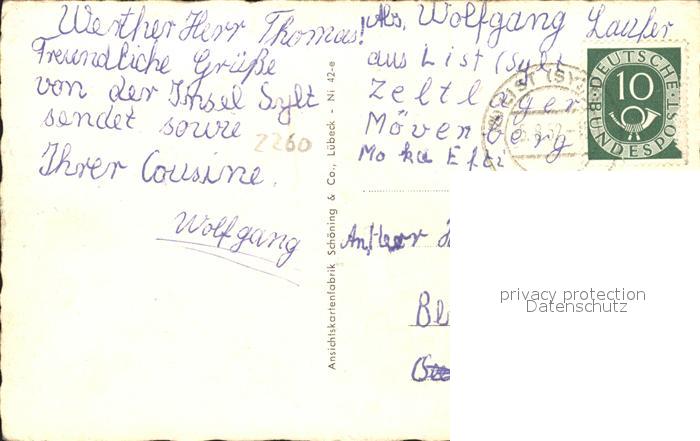 Werther Herr Thomas!
Freundliche Grüße
von der Insel Sylt
sendet sowie
2260
Ihrer Cousine.
Wolfgang
Ansichtskartenfabrik Schöning & Co., Lübeck - Ni 42-e
Abs, Wolfgang Laufer
aus List (Sylt
Zeltlager
Mövenberg
An, Herr
Bl
LIST (SY
DEUTSCHE BUNDESPOST
10
privacy protection
Datenschutz